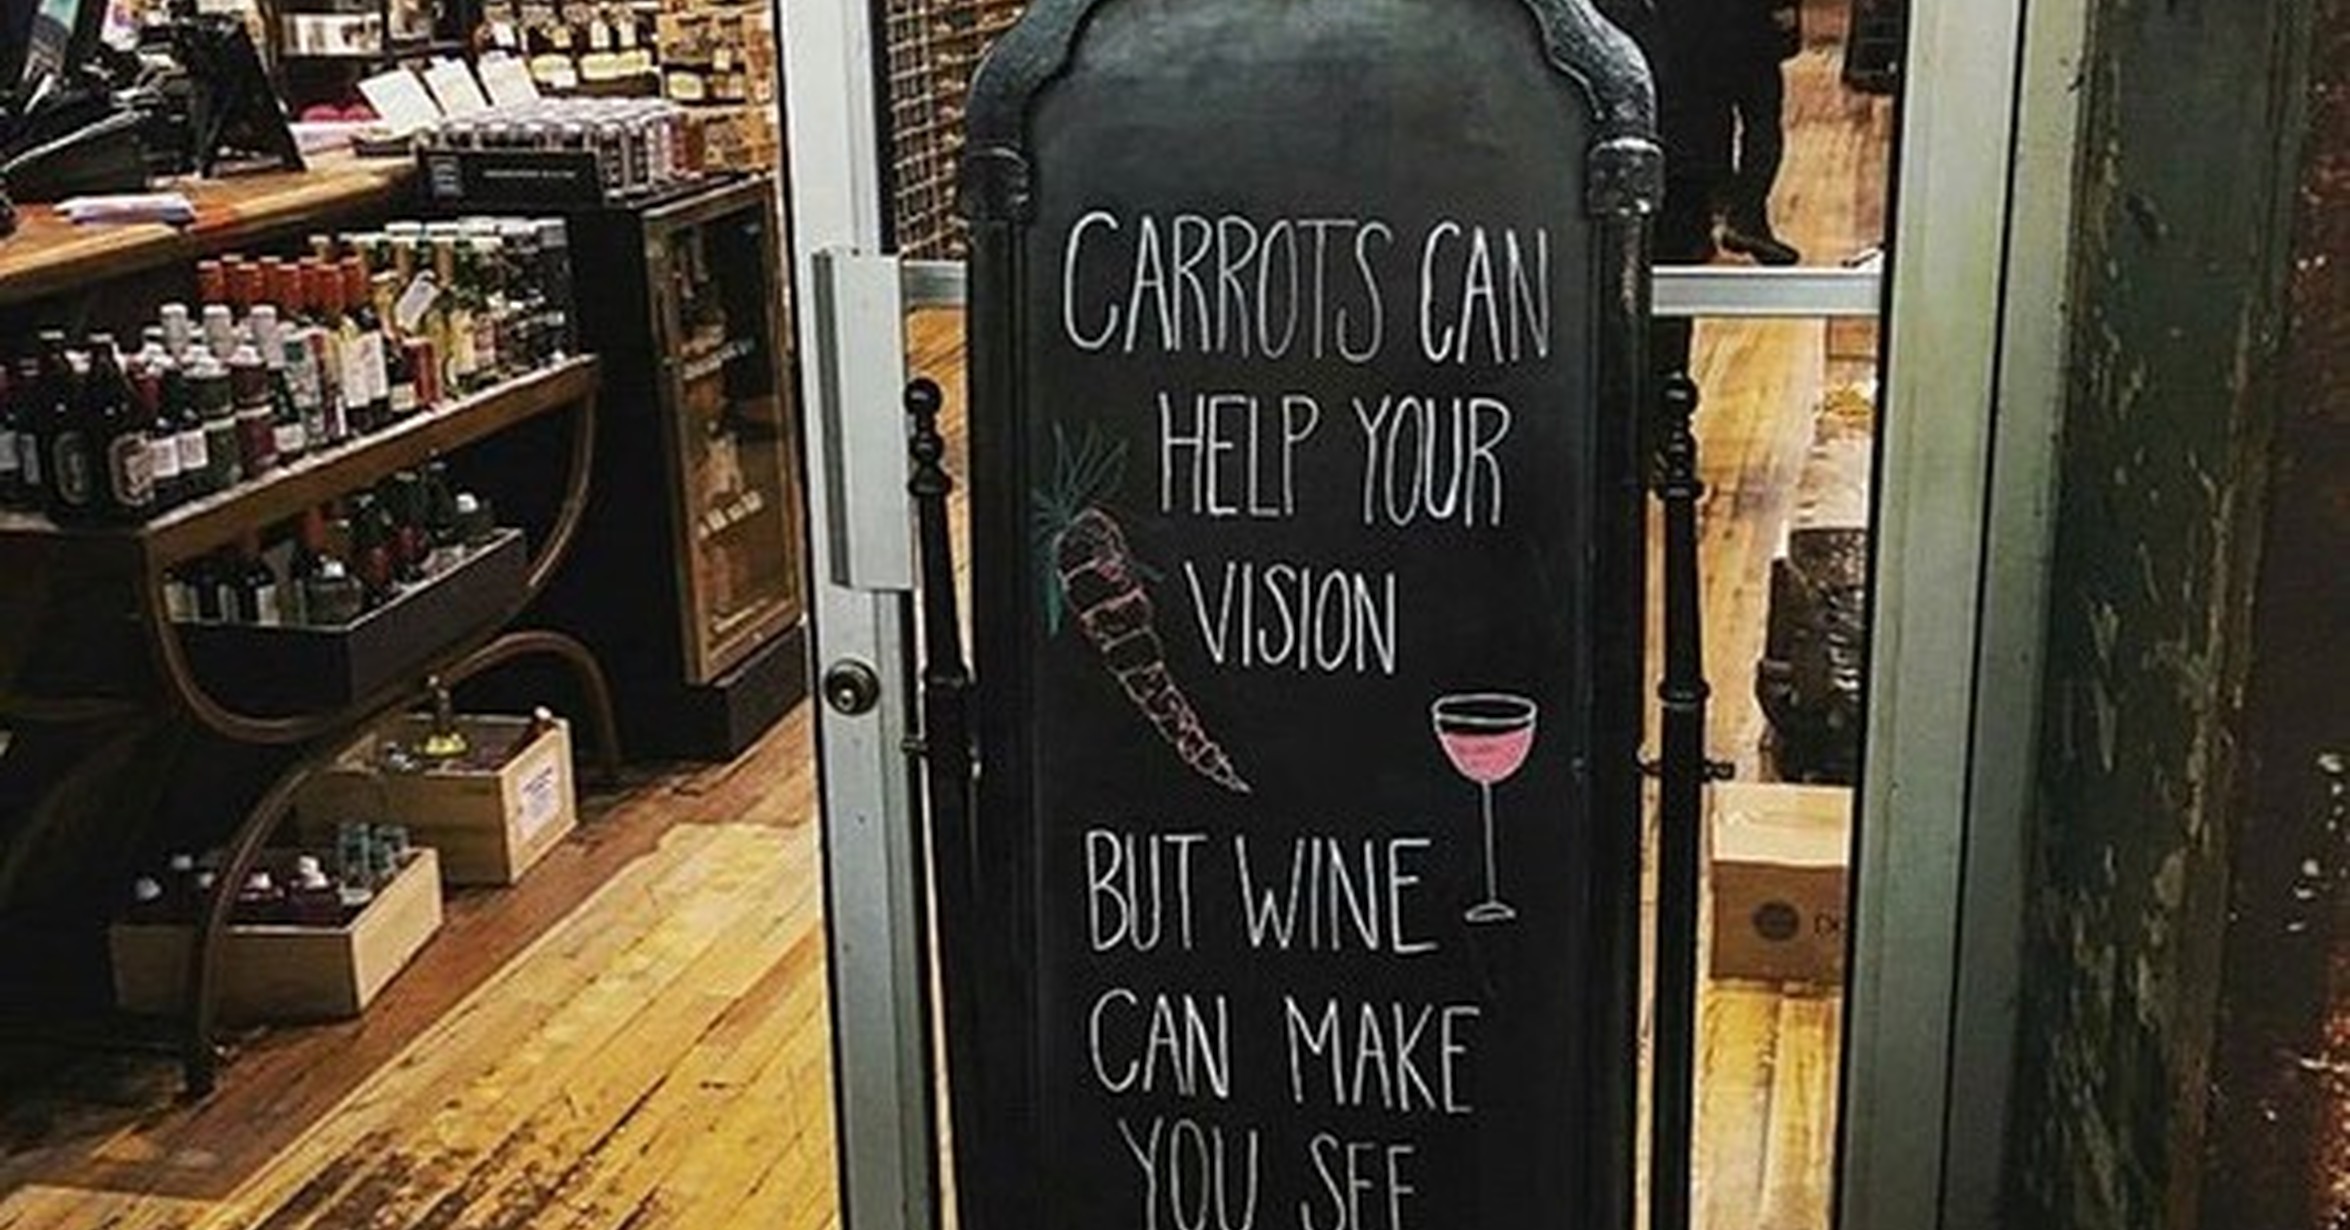 CARROTS CAN
HELP YOUR
VISION
BUT WINE
CAN MAKE
YOU SEE